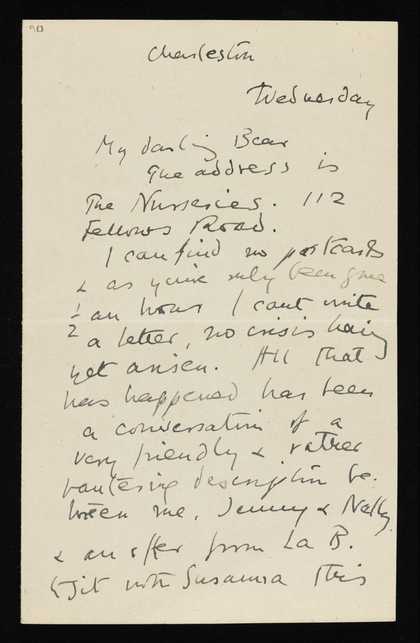 90
Charleston
Wednesday
My darling Bear
The address is
The Nurseries. 112
Fellows Road.
I can find no postcards
& as you've only been gone
1/2 an hour I cant write
a letter, no crisis having
yet arisen. All that
has happened has been
a conversation of a
very friendly & rather
bantering description be-
tween me, Jenny & Nelly
& an offer from La B.
to sit with Susanna this